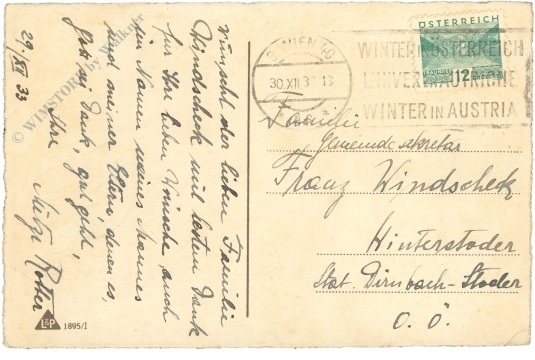 29./XII 33
wünscht der lieben Familie
Windscheck mit bestem Dank
für Ihre lieben Wünsche auch
im Namen meines Mannes
und meiner Eltern, denen es
gott sei Dank, gut geht,
Ihre
Rotter
© WINSTORE by Walkner
L&P 1895/I
WIEN 40
30.XII.33
WINTER IN ÖSTERREICH
L'HIVER EN AUTRICHE
WINTER IN AUSTRIA
ÖSTERREICH
12
Familie
Gemeindesekretär
Franz Windscheck
Hinterstoder
Stat. Dirnbach-Stoder
O. Ö.